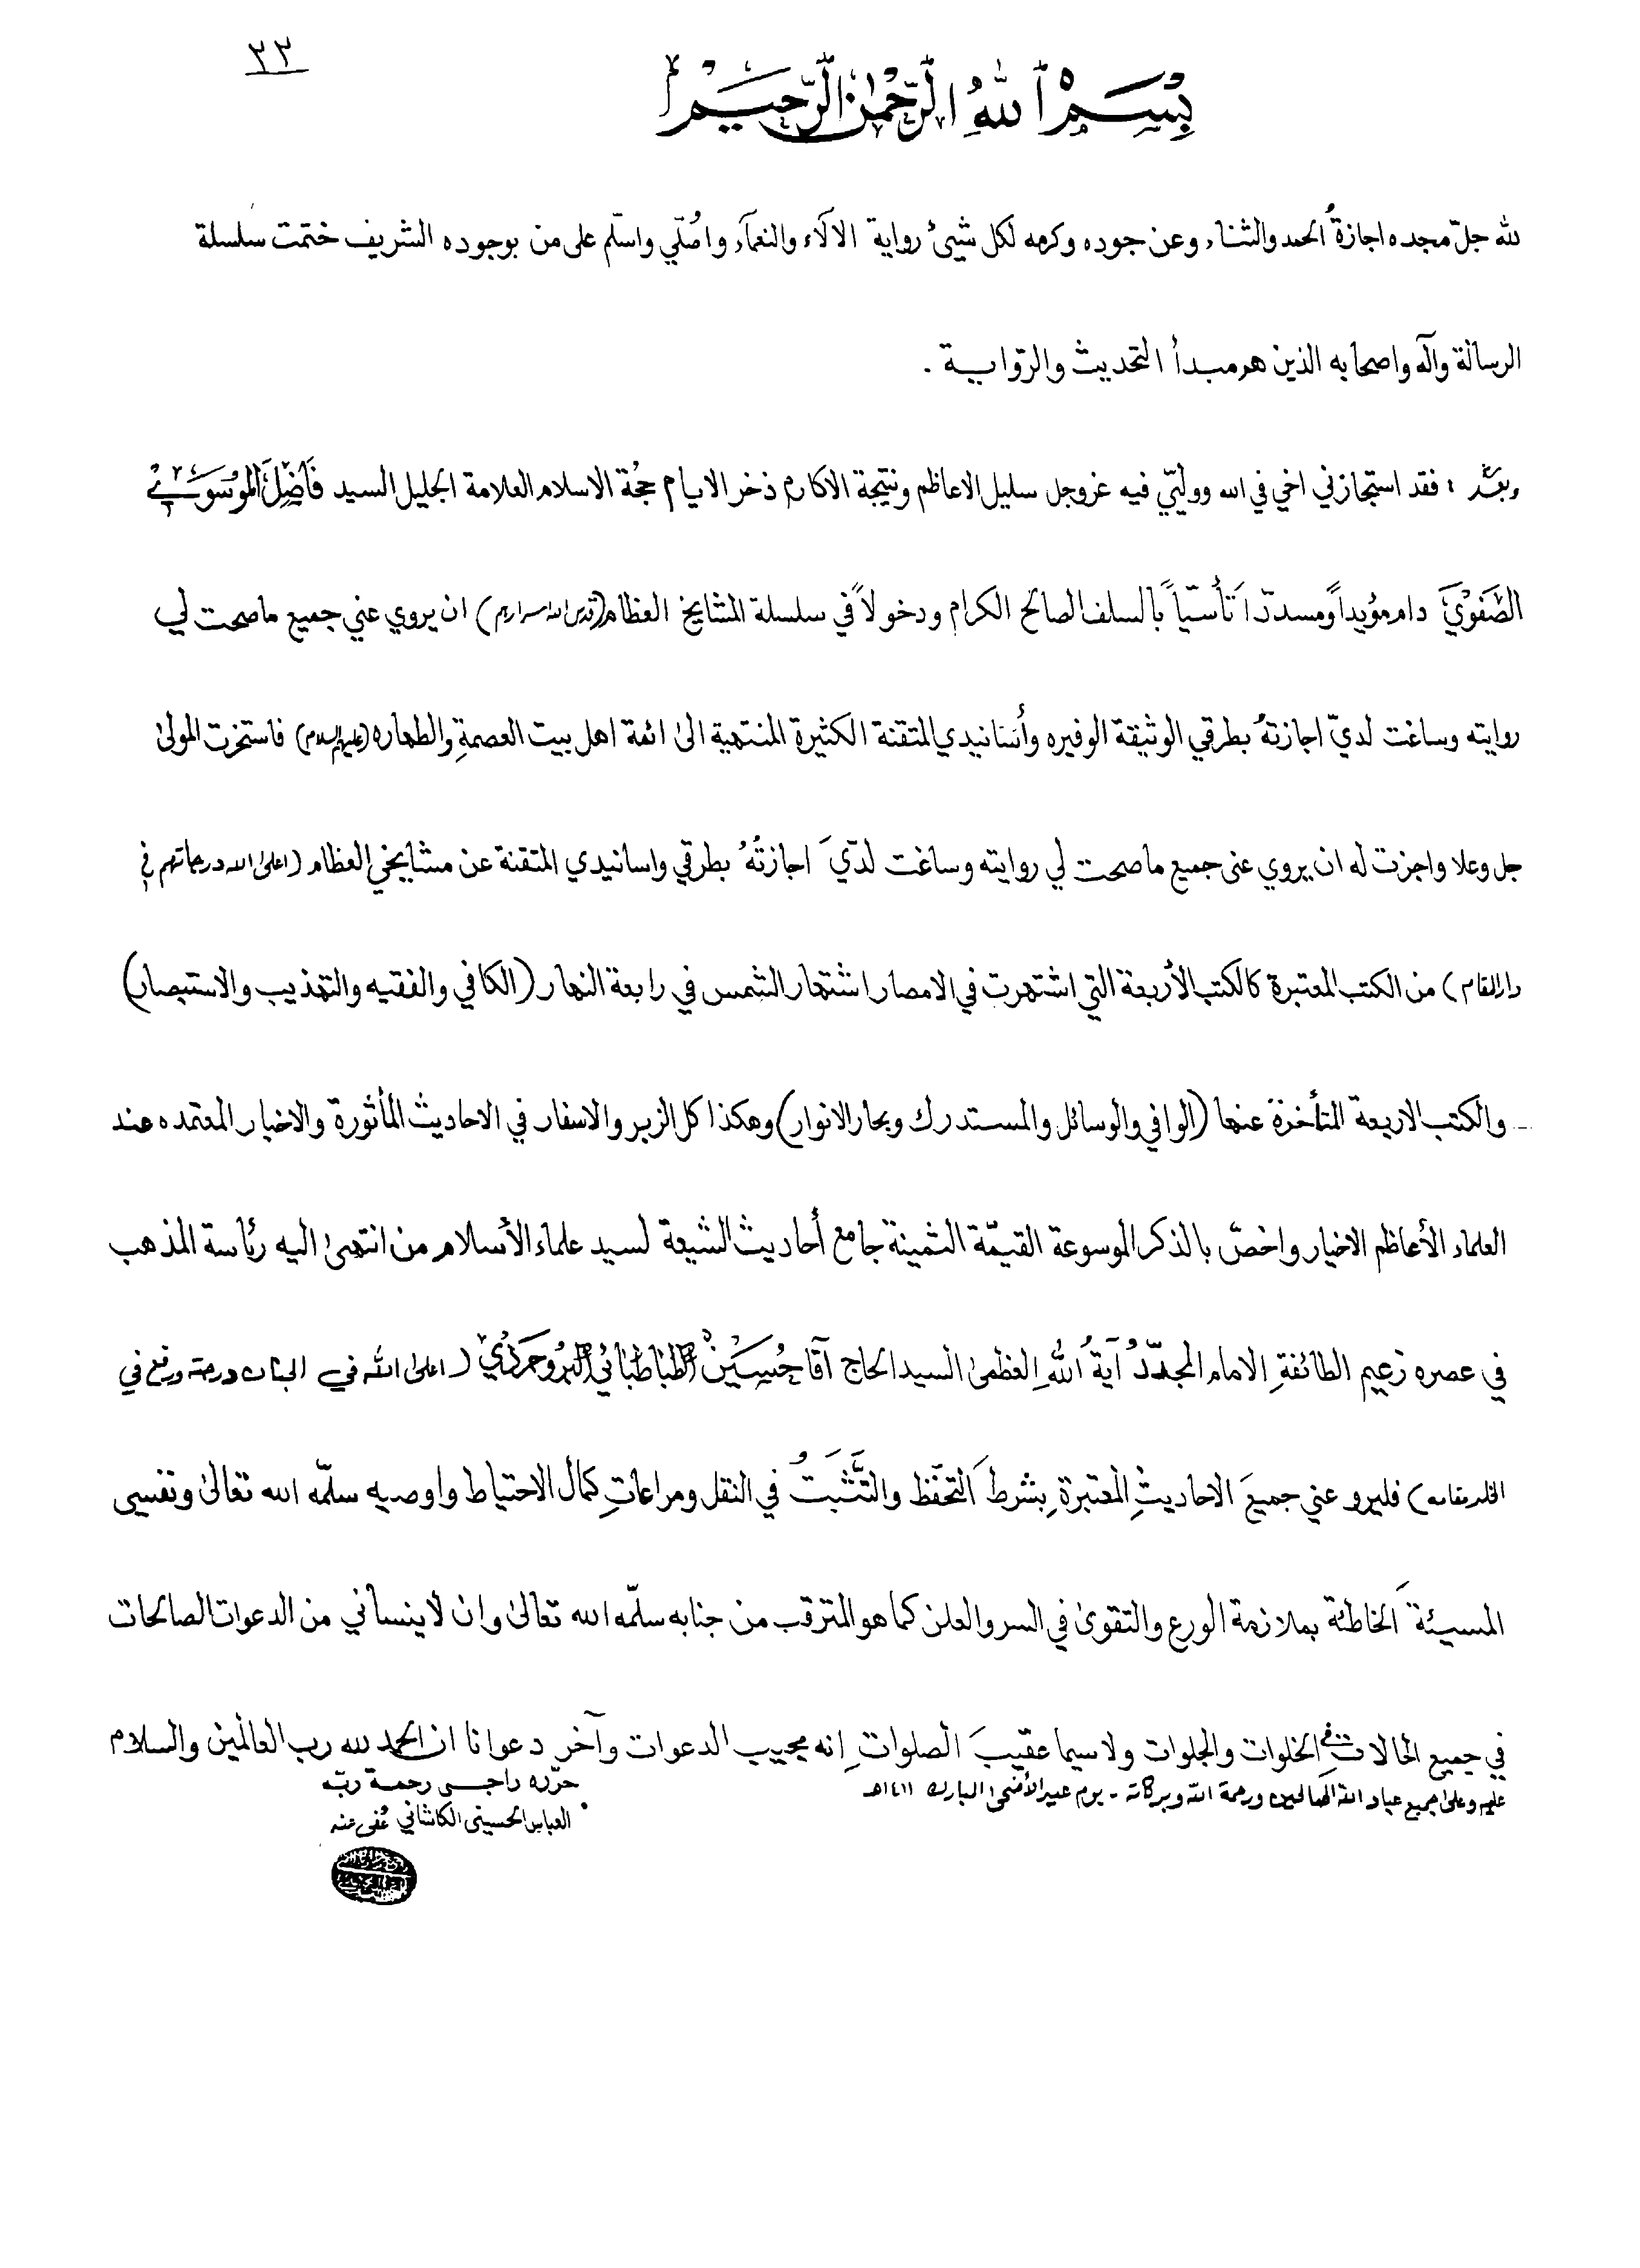 ٣٢
بِسْمِ ٱللهِ الرَّحْمٰنِ الرَّحِيمِ
لله جلّ مجده اجازةُ الحمد والثناء وعن جوده وكرمه لكل شيئ رواية الالآء والنعمآء واُصلّي واسلّم على من بوجوده الشريف ختمت سلسلة
الرسالة وآله واصحابه الذين هم مبدأ التحديث والروّاية .
وبعد : فقد استجازني اخي في الله ووليّي فيه عزوجل سليل الاعاظم ونتيجة الاكارم ذخر الايام حجة الاسلام العلامة الجليل السيد فَاضِلَ الموُسَوِيْ
الصَّفَوْيَ دام مؤيداً ومسددّاً تأسيّاً بالسلف الصالح الكرام ودخولاً في سلسلة المشايخ العظام (قدس الله اسرارهم) ان يروي عني جميع ما صحت لي
روايته وساغت لديّ اجازتهُ بطرقي الوثيقة الوفيره وأسَانيدي المتقنة الكثيرة المنتهية الى ائمة اهل بيت العصمةِ والطهاره (عليهم السلام) فاستخرت المولىٰ
جل وعلا واجزت له ان يروي عنى جميع ما صحت لي روايته وساغت لديّ اجازتهُ بطرقي واسانيدي المتقنة عن مشايخي العظام (اعلىٰ الله درجاتهم في
دار المقام) من الكتب المعتبرة كالكتب الأربعة التي اشتهرت في الامصار اشتهار الشمس في رابعة النهار (الكافي والفقيه والتهذيب والاستبصار)
والكتب الاربعة المتأخرة عنها (الوافي والوسائل والمستدرك وبحار الانوار) وهكذا كل الزبر والاسفار في الاحاديث المأثورة والاخبار المعتمده عند
العلماء الأعاظم الاخيار واخصّ بالذكر الموسوعة القيمّة الثمينة جامع أحاديث الشيعة لسيد علماء الأسلام من انتهىٰ اليه رئاسة المذهب
في عصره زعيم الطائفةِ الامام المجدّدُ آيةُ اللهِ العظمىٰ السيد الحاج آقا حُسَيْن الطباطبائي البرُوجَردُي (اعلىٰ الله في الجنان درجته ورفع في
الخلد مقامه) فليرو عني جميعَ الاحاديثِ المعتبرةِ بشرط التحفّظ والتَّثبتُ في النقل ومراعاتِ كمال الاحتياط واوصيه سلمّه الله تعالىٰ ونفسى
المسيئة الخاطئة بملازمة الورع والتقوىٰ في السر والعلن كما هو المترقب من جنابه سلمّه الله تعالىٰ وان لا ينساني من الدعوات الصالحات
في جميع الحالات في الخلوات والجلوات ولا سيما عقيبَ الصلواتِ انه مجيب الدعوات وآخر دعوانا ان الحمد لله رب العالمين والسلام
عليهم وعلىٰ جميع عباد الله الصالحين ورحمة الله وبركاته - يوم عيد الأضحىٰ المبارك ١٤١١هـ
حرّره راجي رحمة ربّه
العباس الحسيني الكاشاني عُفى عنه